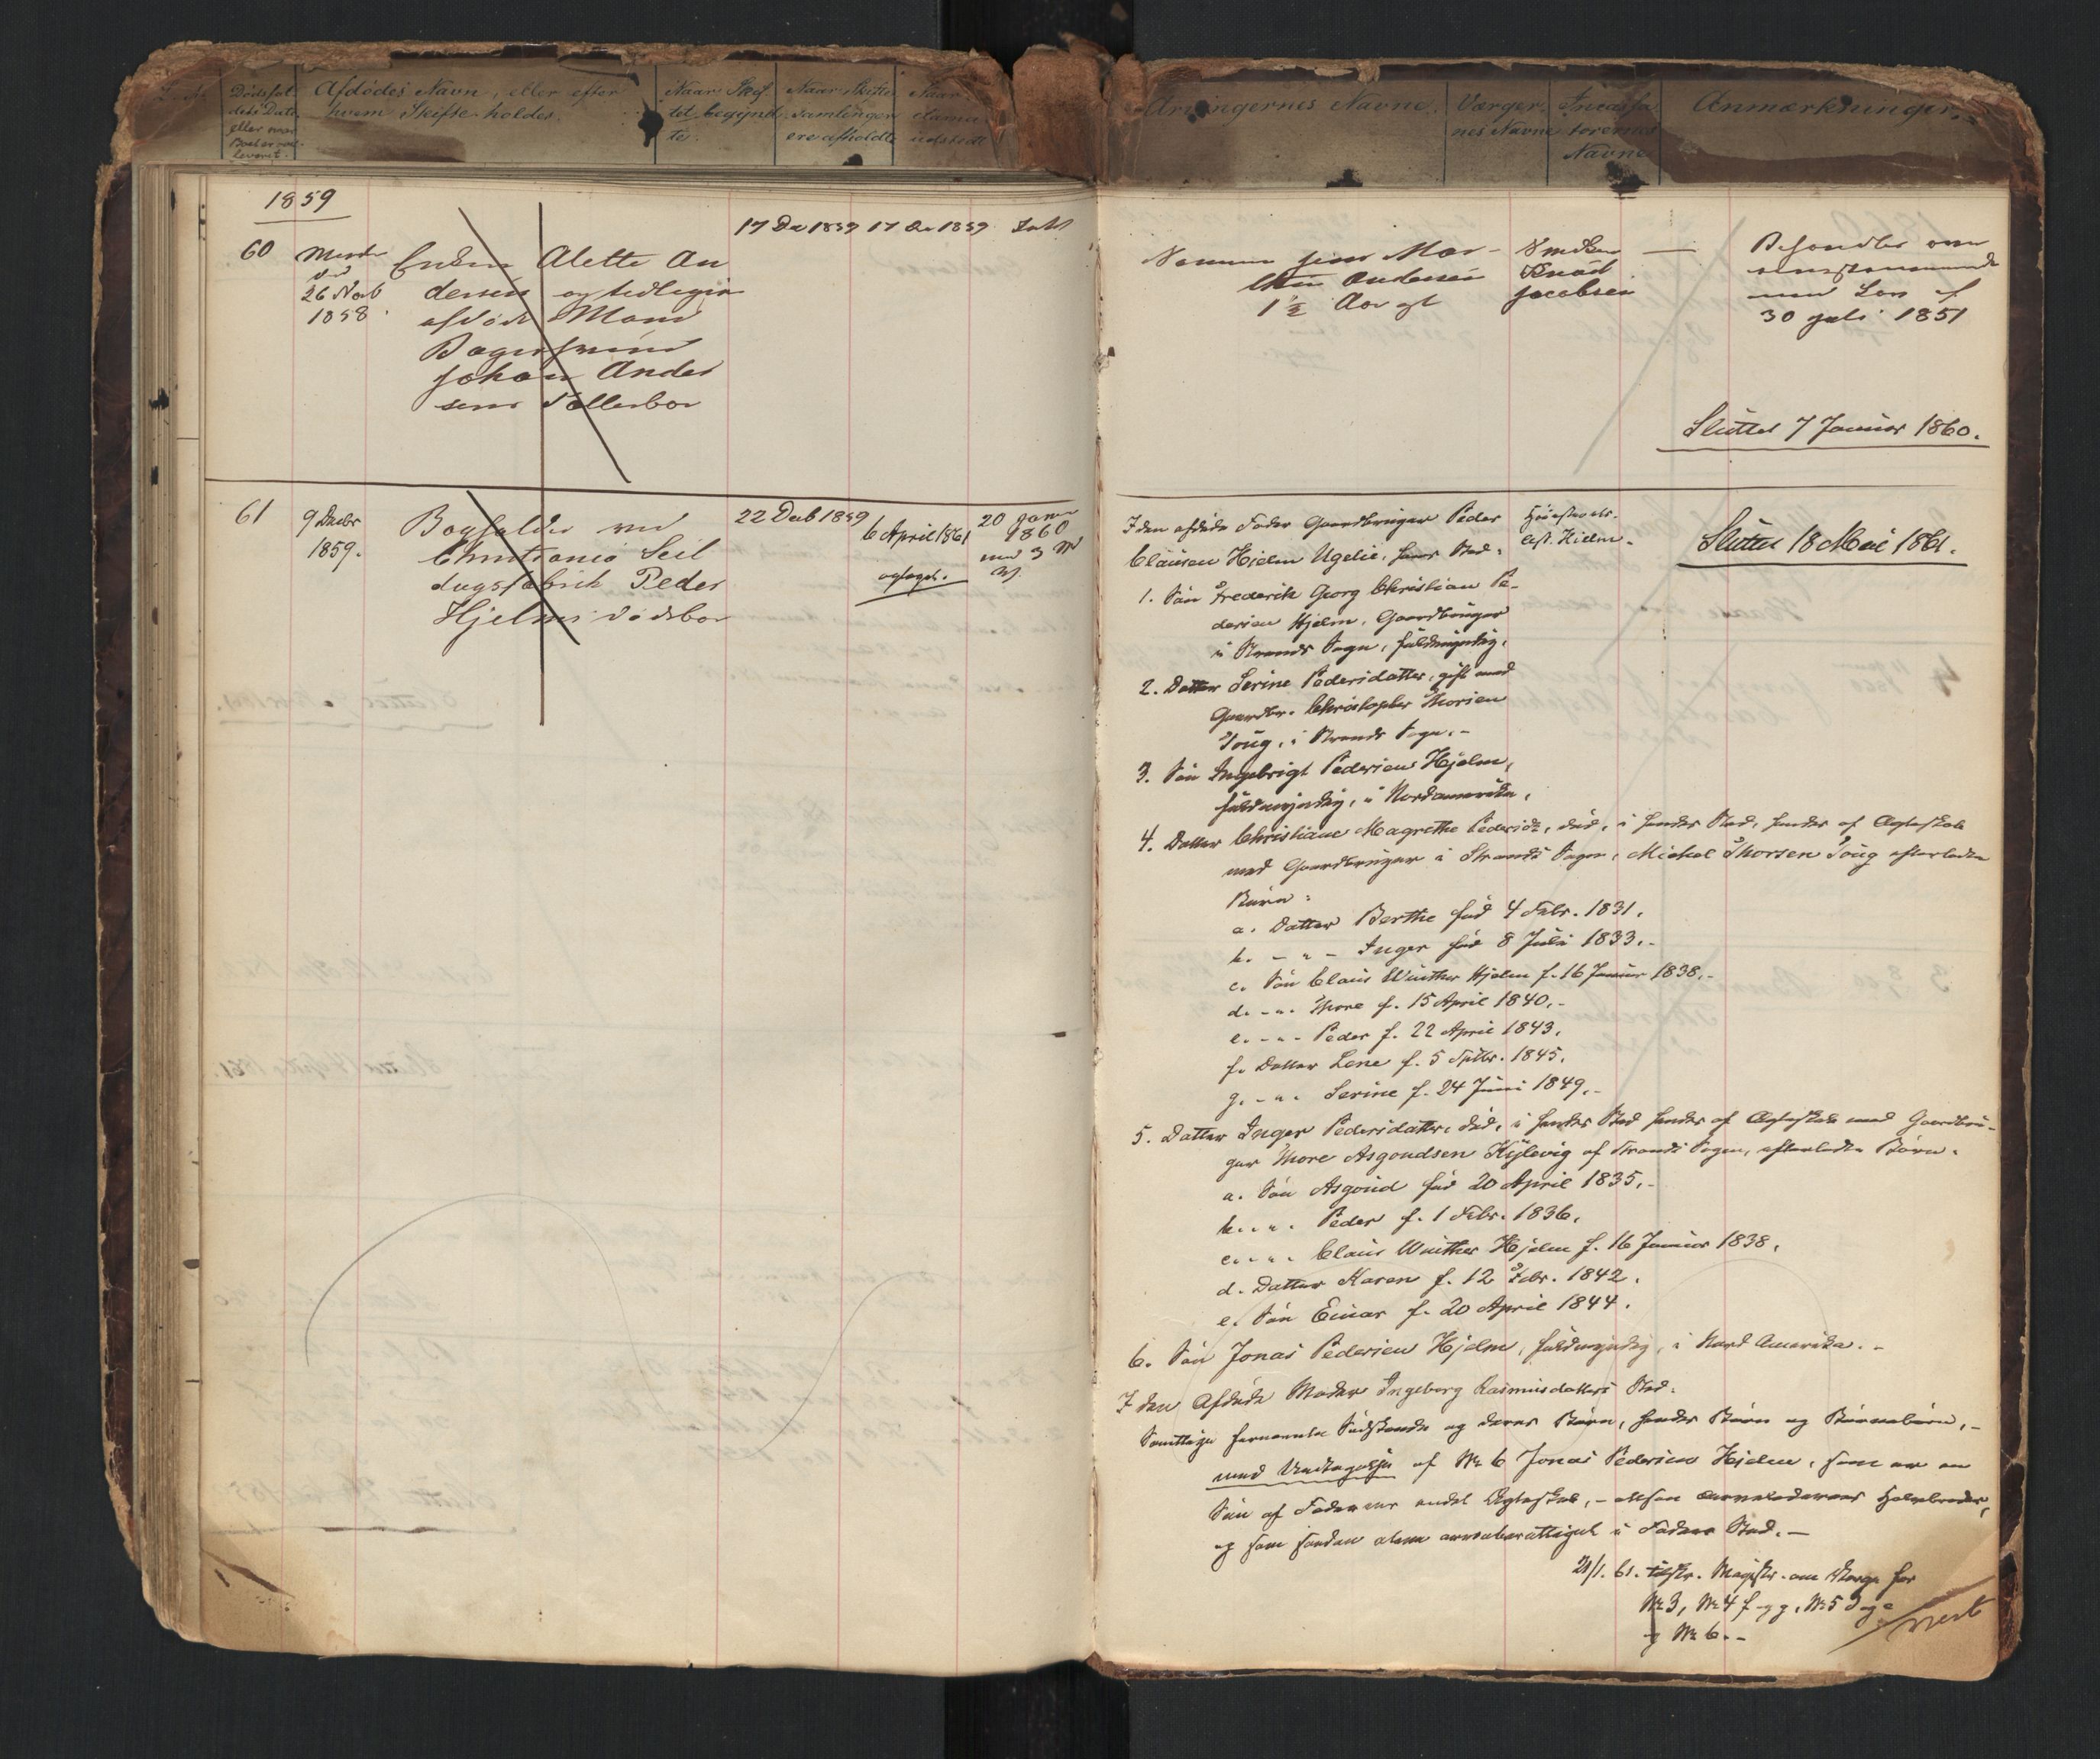 Dødsfal
dets Dato
eller naar
Boet er ind-
leveret.
Afdødes Navn, eller efter
hvem Skifte holdes.
Naar Skif
tet begynd
te.
Naar Skifte
samlinger
ere afholdte
Naar
clama
udstedt
Arvingernes Navne.
Værger
nes Navne
Incassa
torernes
Navne
Anmærkninger.
1859
60
26 Novb
1858.
Enken Alette An
dersen og tidligere
afdøde Mand
Bagersvend
Johan Ander
sens Fællesbo
17 De 1859
17 De 1859
Sønnen Jens Mar-
thin Andersen
1 1/2 Aar gl
Smeden
Knud
Jacobsen
Behandles over
eensstemmende
med Lov af
30 Juli 1851
Sluttet 7 Januar 1860.
61
9 Decbr
1859.
Bogholder ved
Christiania Seil
dugsfabrik Peder
Hjelms Dødsbo
22 Decb 1859
6 April 1861
optaget.
20 Janu
1860
med 3 M
V.
I den afdøde Fader Gaardbruger Peder
Clausen Hjelm Ugelie, hans Sted:
Høiesteretts-
Adv. Hjelm.
Sluttet 18 Mai 1861.
1. Søn Frederik Georg Christian Pe-
dersen Hjelm, Gaardbruger
i Strands Sogn, fuldmyndig,
2. Datter Serine Pedersdatter, gift med
Gaardbr. Christopher Thorsen
Toug, i Strands Sogn.-
3. Søn Ingebrigt Pedersens Hjelm,
fuldmyndig, i Nordamerika,
4. Datter Christiane Magrethe Pedersdr, død, i hendes Sted, hendes af Ægteskab
med Gaardbruger i Strands Sogn, Mickel Thorsen Toug efterladte
Børn:
a. Datter Berthe fød 4 Febr. 1831.
b. - " - Inger fød 8 Juli 1833.-
c. Søn Claus Winther Hjelm f. 16 Januar 1838.-
d. - ". Thore f. 15 April 1840.-
e. - ". Peder f. 22 April 1843.
f. Datter Lene f. 5 Septbr. 1845.
g. - ". Serine f. 24 Juni 1849.-
5. Datter Inger Pedersdatter, død, i hendes Sted hendes af Ægteskab med Gaardbru-
ger Thore Asgoudsen Kijlevig af Strands Sogn, efterladte Børn.
a. Søn Asgoud fød 20 April 1835.-
b. - ". Peder f. 1 Febr. 1836.
c. - ". Claus Winther Hjelm f. 16 Januar 1838.
d. Datter Karen f. 12 Febr. 1842.
e. Søn Einar f. 20 April 1844.
6. Søn Jonas Pedersen Hjelm, fuldmyndig, i Nord Amerika.-
I den Afdøde Moder Ingeborg Rasmusdatters Sted:
Samtlige fornævnte Sødskende og deres Børn, hendes Børn og Børnebørn,-
med Undtagelse af No 6 Jonas Pedersen Hjelm, som er en
Søn af Faderens andet Ægteskab,- altsaa Halvbroder,
og som saadan alene arveberettiget i Faders Sted.-
21/1. 61. tilskr. Magistr. om Værge for
No 3, No 4 f og g, No 5 d og e
og No 6.-
vert